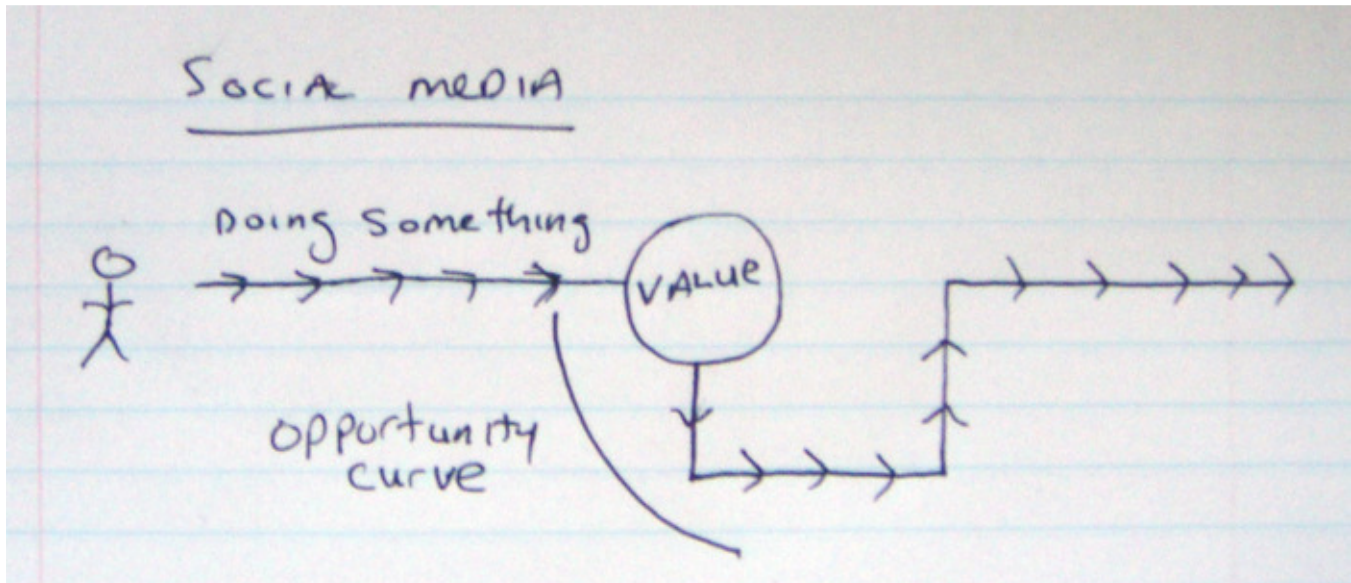 SOCIAL MEDIA
Doing Something
VALUE
opportunity
curve